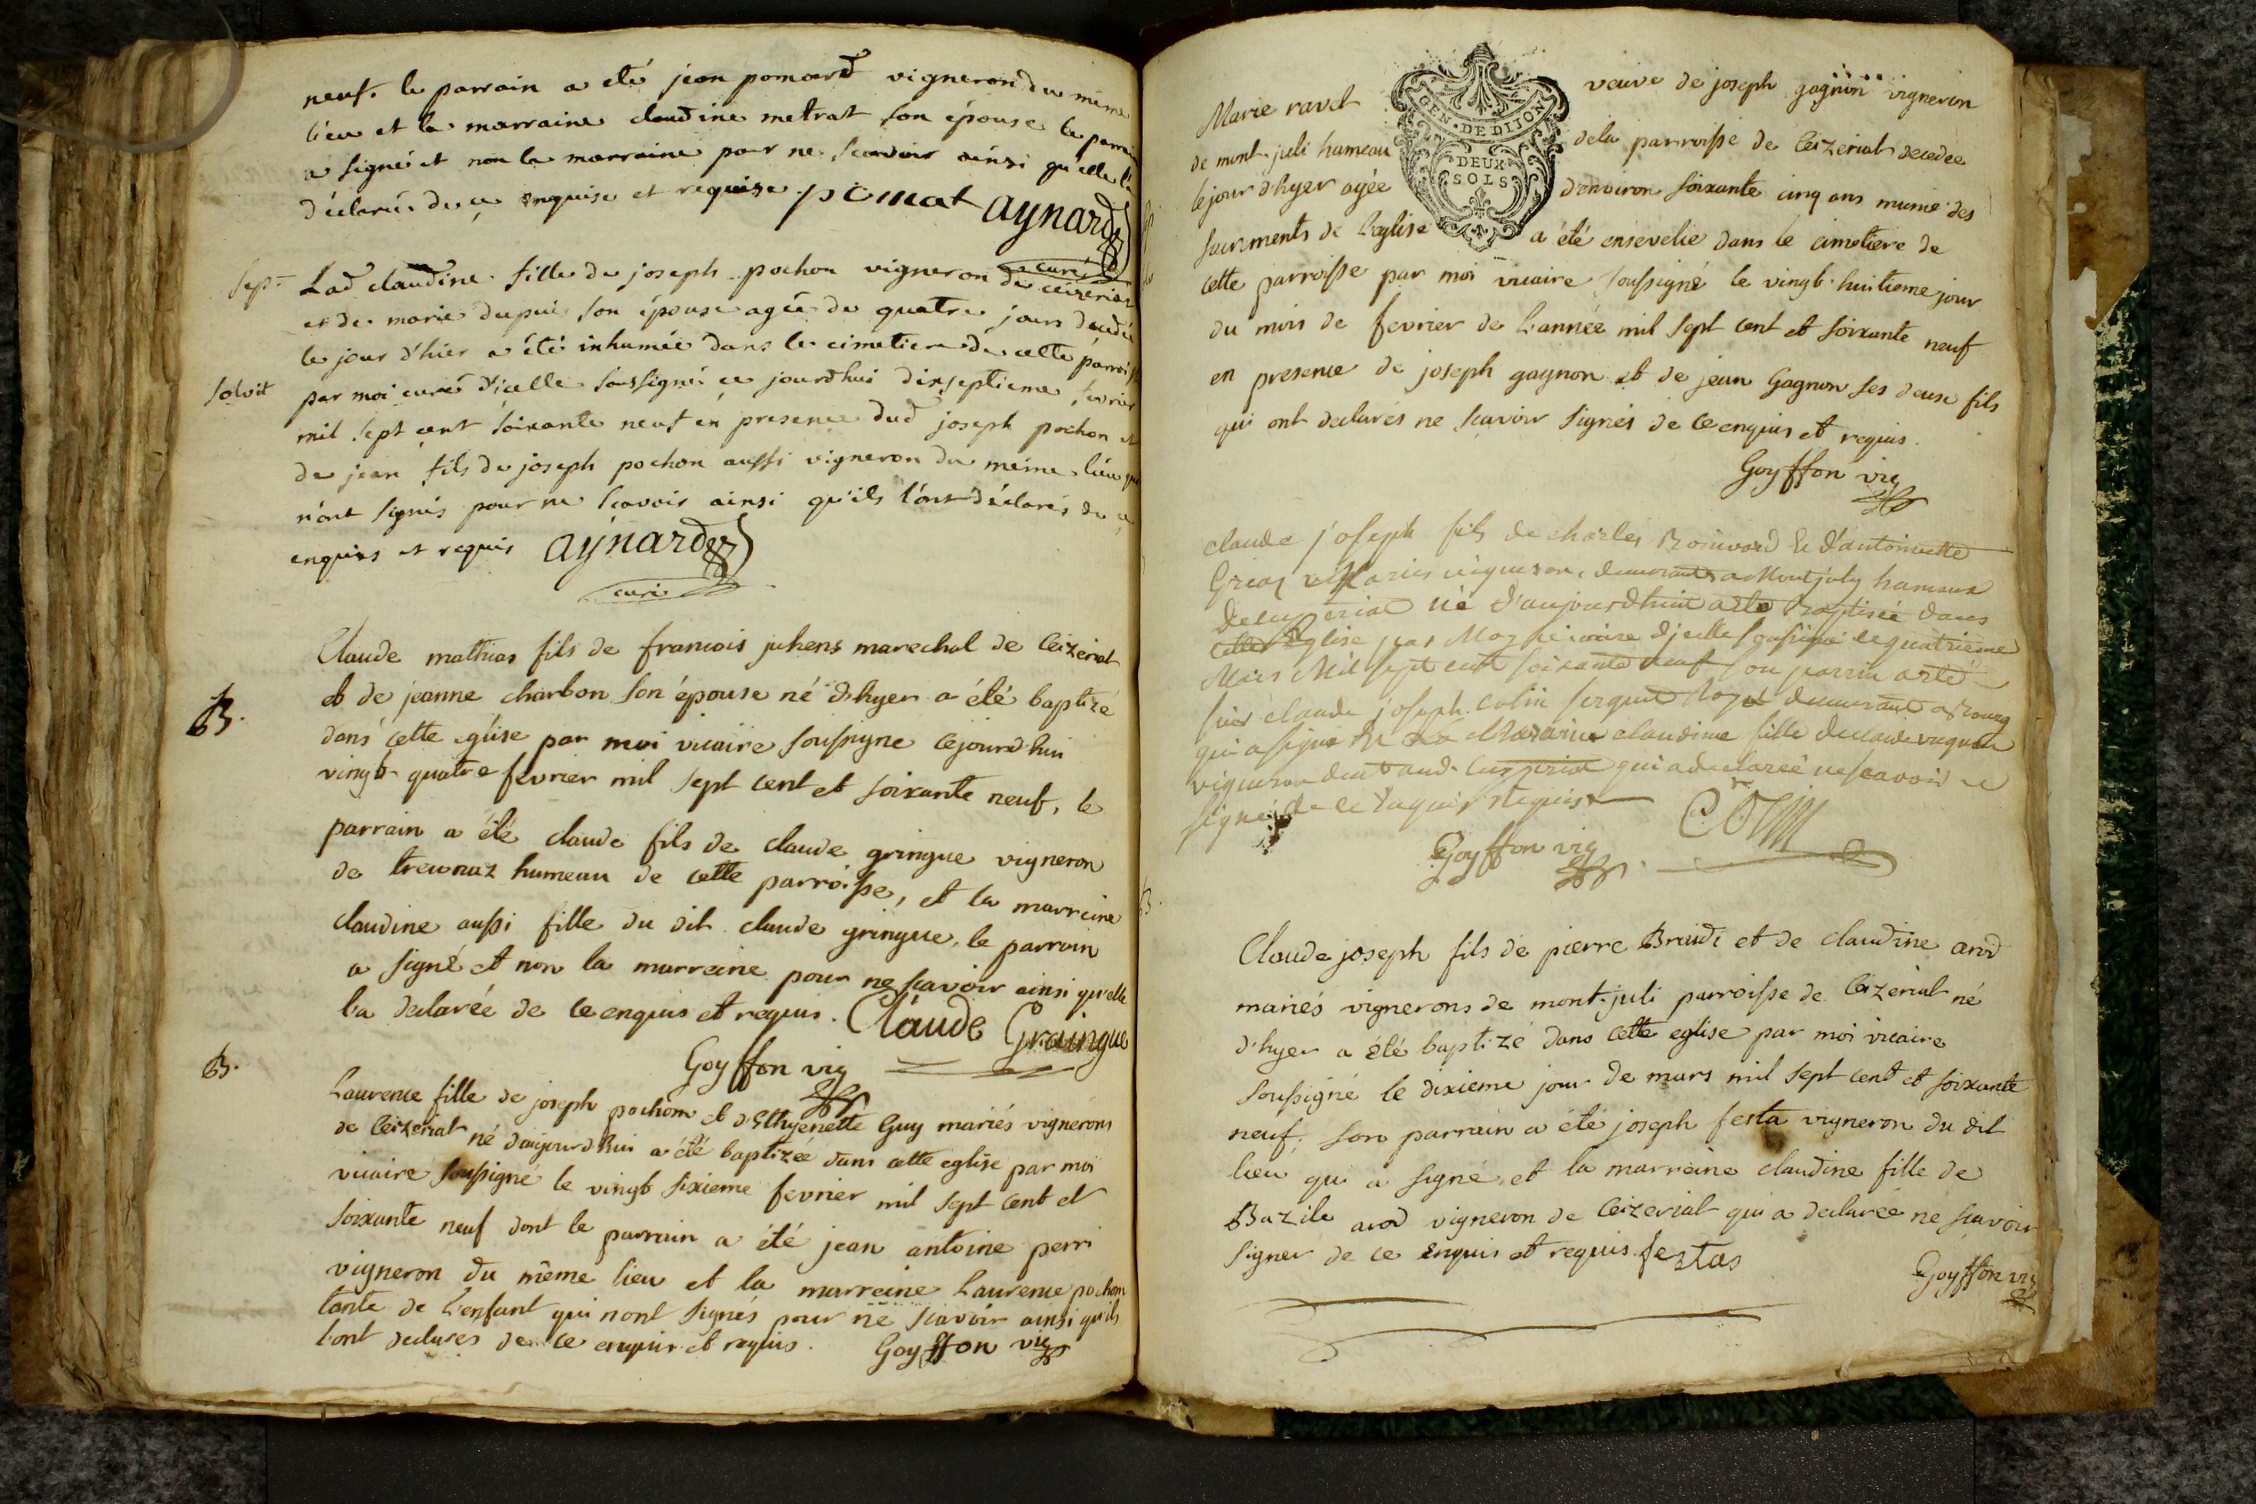 neuf. le parrain a eté jean pomard vigneron du même
lieu et la marraine claudine metrat son épouse le parrain
a signé et non la marraine pour ne scavoir ainsi qu'elle l'a
déclaré de ce enquise et requise. pomat aynard
curé
Sep.
Lad claudine fille de joseph pochon vigneron de ceizeriat
et de marie dupui son épouse agée de quatre jours decedée
le jour d'hier a été inhumée dans le cimetiere de cette parroisse
solvit
par moi curé d'icelle soussigné ce jourdhui dixseptieme fevrier
mil sept cent soixante neuf en presence dud joseph pochon et
de jean fils de joseph pochon aussi vigneron du même lieu qui
n'ont signés pour ne scavoir ainsi qu'ils l'ont déclarés de ce
enquis et requis aynard
curé
Claude mathias fils de francois juhens marechal de Ceizeriat
B.
et de jeanne charbon son épouse né d'hyer a été baptizé
dans cette eglise par moi vicaire soussigne cejourd'hui
vingt quatre fevrier mil sept cent et soixante neuf, le
parrain a été claude fils de claude gringue vigneron
de treconaz hameau de cette parroisse, et la marreine
claudine aussi fille du dit claude gringue, le parrain
a signé et non la marreine pour ne scavoir ainsi qu'elle
la declarée de ce enquis et requis. Claude Grainque
Goyffon vic
B.
Laurence fille de joseph pochon et d'Ethyenette Guy mariés vignerons
de Ceizeriat né d'aujourd'hui a été baptizée dans cette eglise par moi
vicaire soussigné le vingt sixieme fevrier mil sept cent et
soixante neuf dont le parrain a été jean antoine perri
vigneron du même lieu et la marreine Laurence pochon
tante de l'enfant qui nont signés pour ne scavoir ainsi qu'ils
l'ont declarés de ce enquis et requis. Goyffon vic
GEN. DE DIJON
DEUX
SOLS
Marie ravet veuve de joseph gagnon vigneron
de mont-juli hameau dela parroisse de Ceizeriat decedée
le jour d'hyer agée d'environ soixante cinq ans munie des
sacrments de l'eglise a été ensevelie dans le cimetiere de
cette parroisse par moi vicaire soussigné le vingt-huitieme jour
du mois de fevrier de l'année mil sept cent et soixante neuf
en presence de joseph gagnon et de jean Gagnon ses deux fils
qui ont declarés ne scavoir signés de ce enquis et requis.
Goyffon vic
claude joseph fils de charles et d'antoinette
vigneron demeurants a Montjuly hameau
né d'aujourdhuit a été Baptisée dans
cette Eglise par Moy vicaire d'icelle soussigné le quatrieme
Mars Mil sept cent soixante neuf son parrin a été
sier claude joseph colin sergent Royal demeurant a Bourg
qui a signé et La Maraine claudine fille
vigneron qui a declareé ne scavoir
signé de ce Enquis et Requis
Colin
Goyffon vic
Claude joseph fils de pierre Braidi et de claudine arod
mariés vignerons de mont-juli parroisse de Ceizeriat né
d'hyer a été baptizé dans cette eglise par moi vicaire
soussigné le dixieme jour de mars mil sept cent et soixante
neuf. son parrain a été joseph festa vigneron du dit
lieu qui a signé, et la marreine claudine fille de
Bazile arod vigneron de Ceizeriat qui a declarée ne scavoir
signer de ce enquis et requis. festas
Goyffon vic